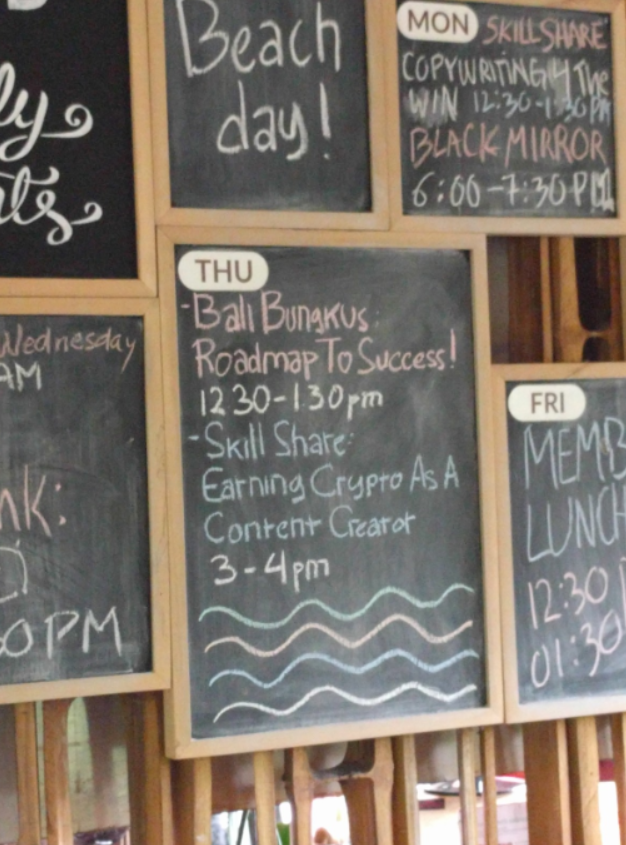 Beach
day!
MON SKILLSHARE
COPYWRITING 4 The
WIN 12:30-1:30PM
BLACK MIRROR
6:00-7:30PM
Wednesday
AM
THU
-Bali Bungkus:
Roadmap To Success!
12 30-1.30pm
-Skill Share:
Earning Crypto As A
Content Creator
3-4pm
FRI
MEMB
LUNCH
12:30
01:30
nk:
30PM
ly
ts